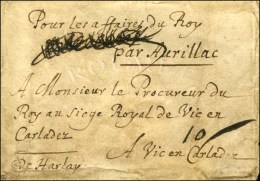 Pour les affaires du Roy
par Aurillac
A Monsieur le Procureur du
Roy au siege Royal de Vic en
Carladez
10
De Harlay
A Vic en Carladez